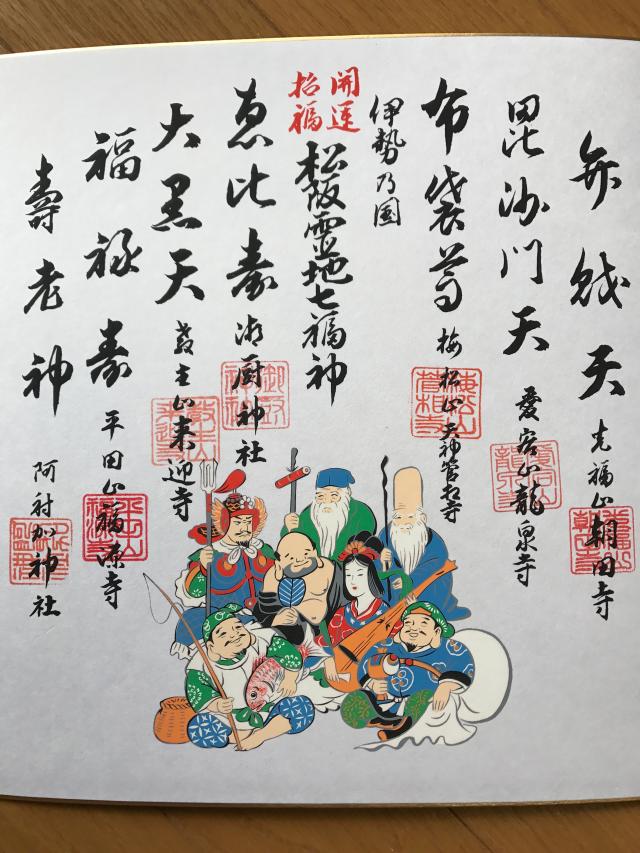 弁財天
光福山朝田寺
毘沙門天
愛宕山龍泉寺
布袋尊
梅松山天神菅相寺
伊勢乃國
開運
招福
松阪霊地七福神
恵比寿
御厨神社
大黒天
教主山来迎寺
福禄寿
平田山福源寺
壽老神
阿射加神社